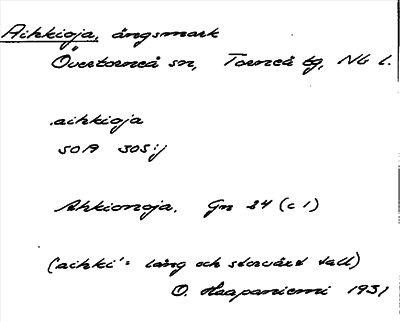 Aihkioja, ängsmark
Övertorneå sn, Torneå tg, Nb l.
aihkioja
SOA 305:j
Ahkionoja. Gn 24 (c 1)
('aihki' = lång och storväxt tall)
O. Haapaniemi 1931